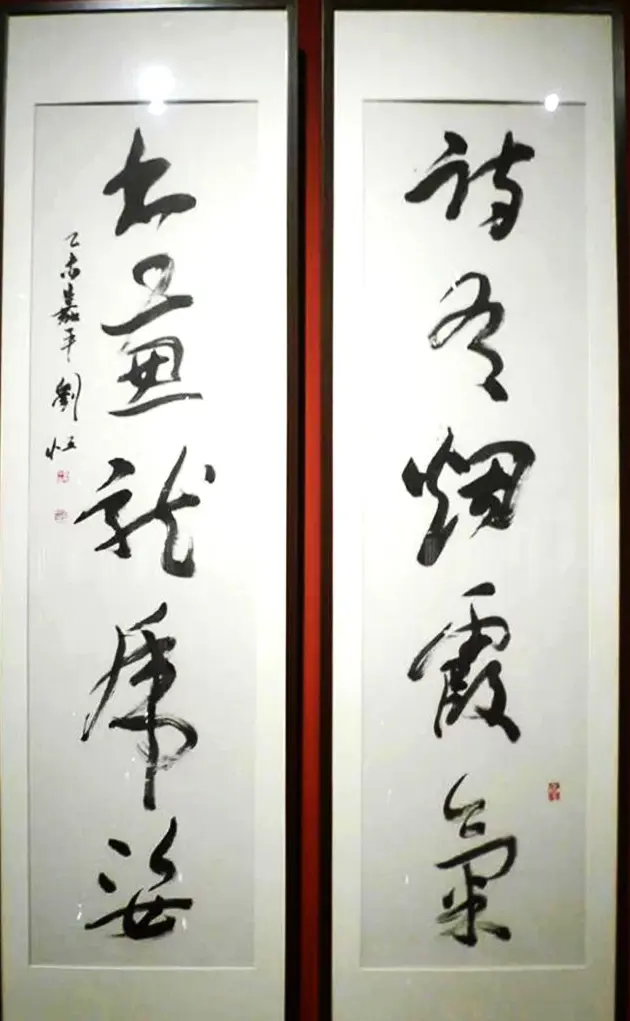 詩有烟霞氣
書兼龍虎姿
乙未嘉平 劉恒